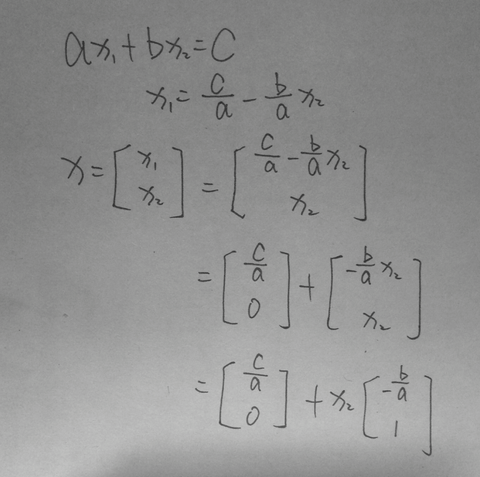 ax₁+bx₂=C
x₁=\frac{c}{a}-\frac{b}{a}x₂
x=\begin{bmatrix}x₁\\x₂\end{bmatrix}=\begin{bmatrix}\frac{c}{a}-\frac{b}{a}x₂\\x₂\end{bmatrix}
=\begin{bmatrix}\frac{c}{a}\\0\end{bmatrix}+\begin{bmatrix}-\frac{b}{a}x₂\\x₂\end{bmatrix}
=\begin{bmatrix}\frac{c}{a}\\0\end{bmatrix}+x₂\begin{bmatrix}-\frac{b}{a}\\1\end{bmatrix}